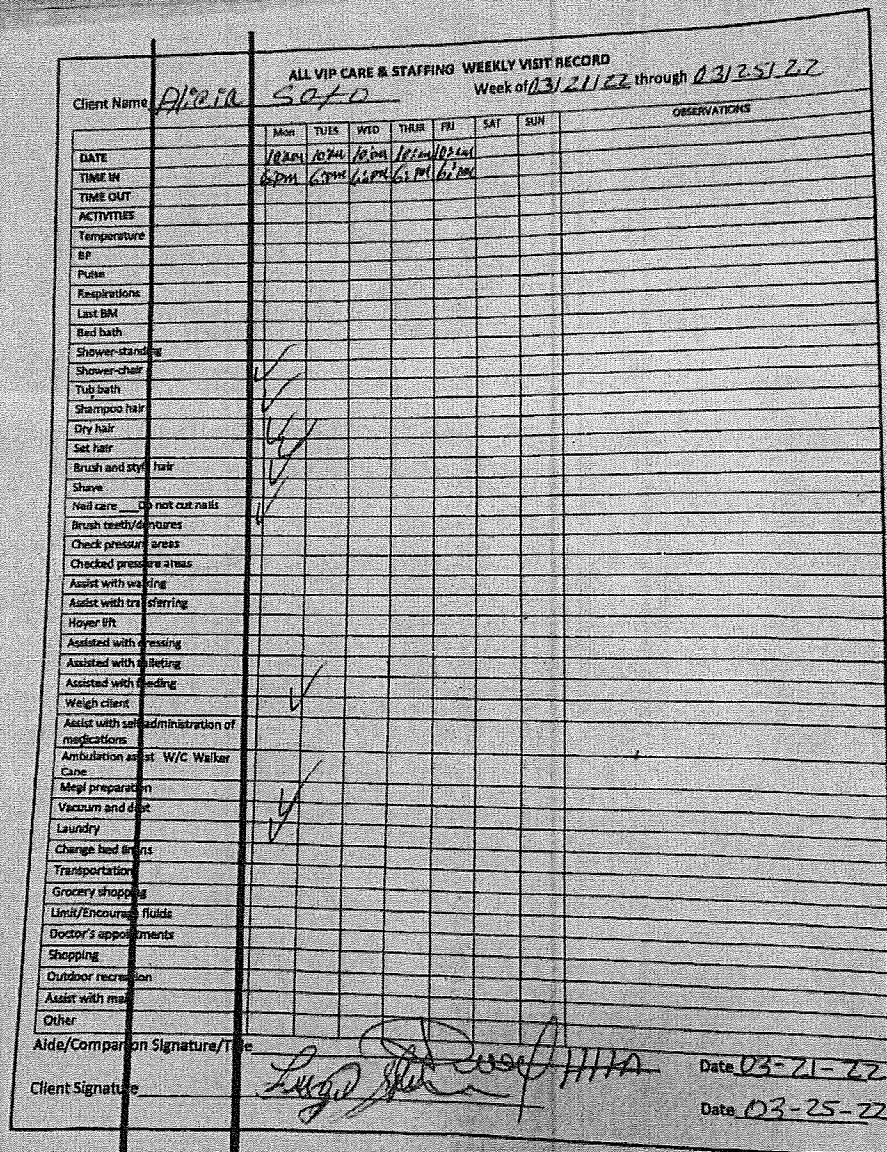 ALL VIP CARE & STAFFING WEEKLY VISIT RECORD
Client Name Alicia Soto Week of 03/21/22 through 03/25/22
Mon TUES WED THUR FRI SAT SUN OBSERVATIONS
DATE 10am 10am 10am 10am 10am
TIME IN 6pm 6pm 6pm 6pm 6pm
TIME OUT
ACTIVITIES
Temperature
BP
Pulse
Respirations
Last BM
Bed bath
Shower-standing
Shower-chair
Tub bath
Shampoo hair
Dry hair
Set hair
Brush and style hair
Shave
Nail care ___Do not cut nails
Brush teeth/dentures
Check pressure areas
Checked pressure areas
Assist with walking
Assist with transferring
Hoyer lift
Assisted with dressing
Assisted with toileting
Assisted with feeding
Weigh client
Assist with self administration of
medications
Ambulation assist W/C Walker
Cane
Meal preparation
Vacuum and dust
Laundry
Change bed linens
Transportation
Grocery shopping
Limit/Encourage fluids
Doctor's appointments
Shopping
Outdoor recreation
Assist with mail
Other
Aide/Companion Signature/Title HHA Date 03-21-22
Client Signature Date 03-25-22